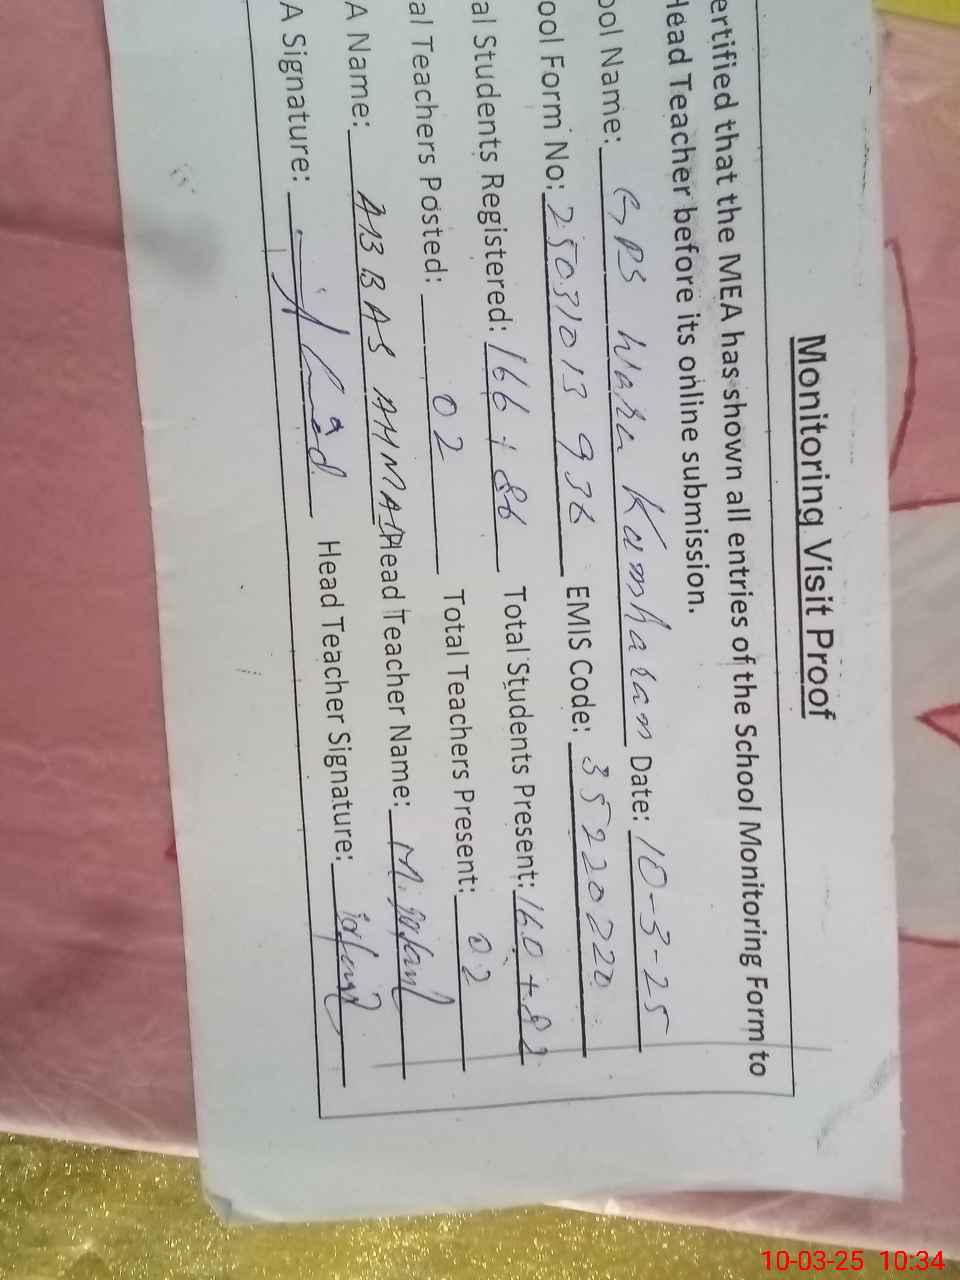 Monitoring Visit Proof
ertified that the MEA has shown all entries of the School Monitoring Form to
Head Teacher before its online submission.
ool Name: GPS Wara Kamharam Date: 10-3-25
ool Form No: 25031013 936 EMIS Code: 35220220
al Students Registered: 166 + 86 Total Students Present: 160 + 82
al Teachers Posted: 02 Total Teachers Present: 02
A Name: ABBAS AHMAD Head Teacher Name: M.
A Signature: Head Teacher Signature:
10-03-25 10:34